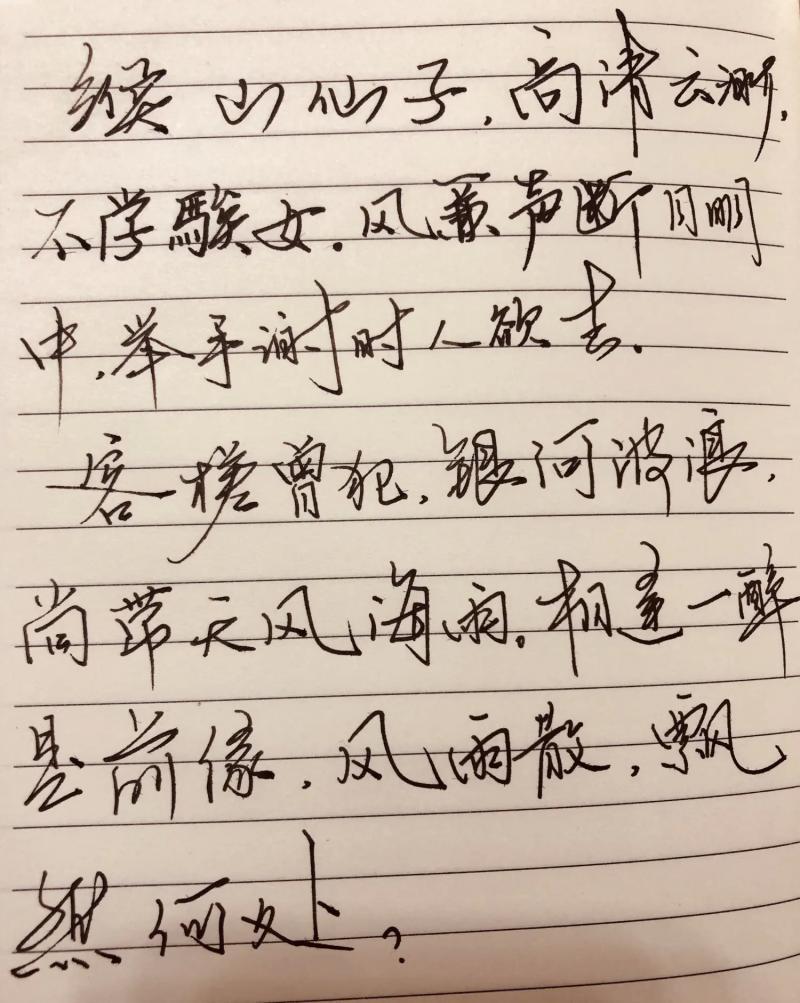 缑山仙子，高清云渺，
不学騃女。风萧声断月明
中，举手谢时人欲去。
客槎曾犯，银河波浪，
尚带天风海雨。相逢一醉
是前缘，风雨散，飘
然何处？